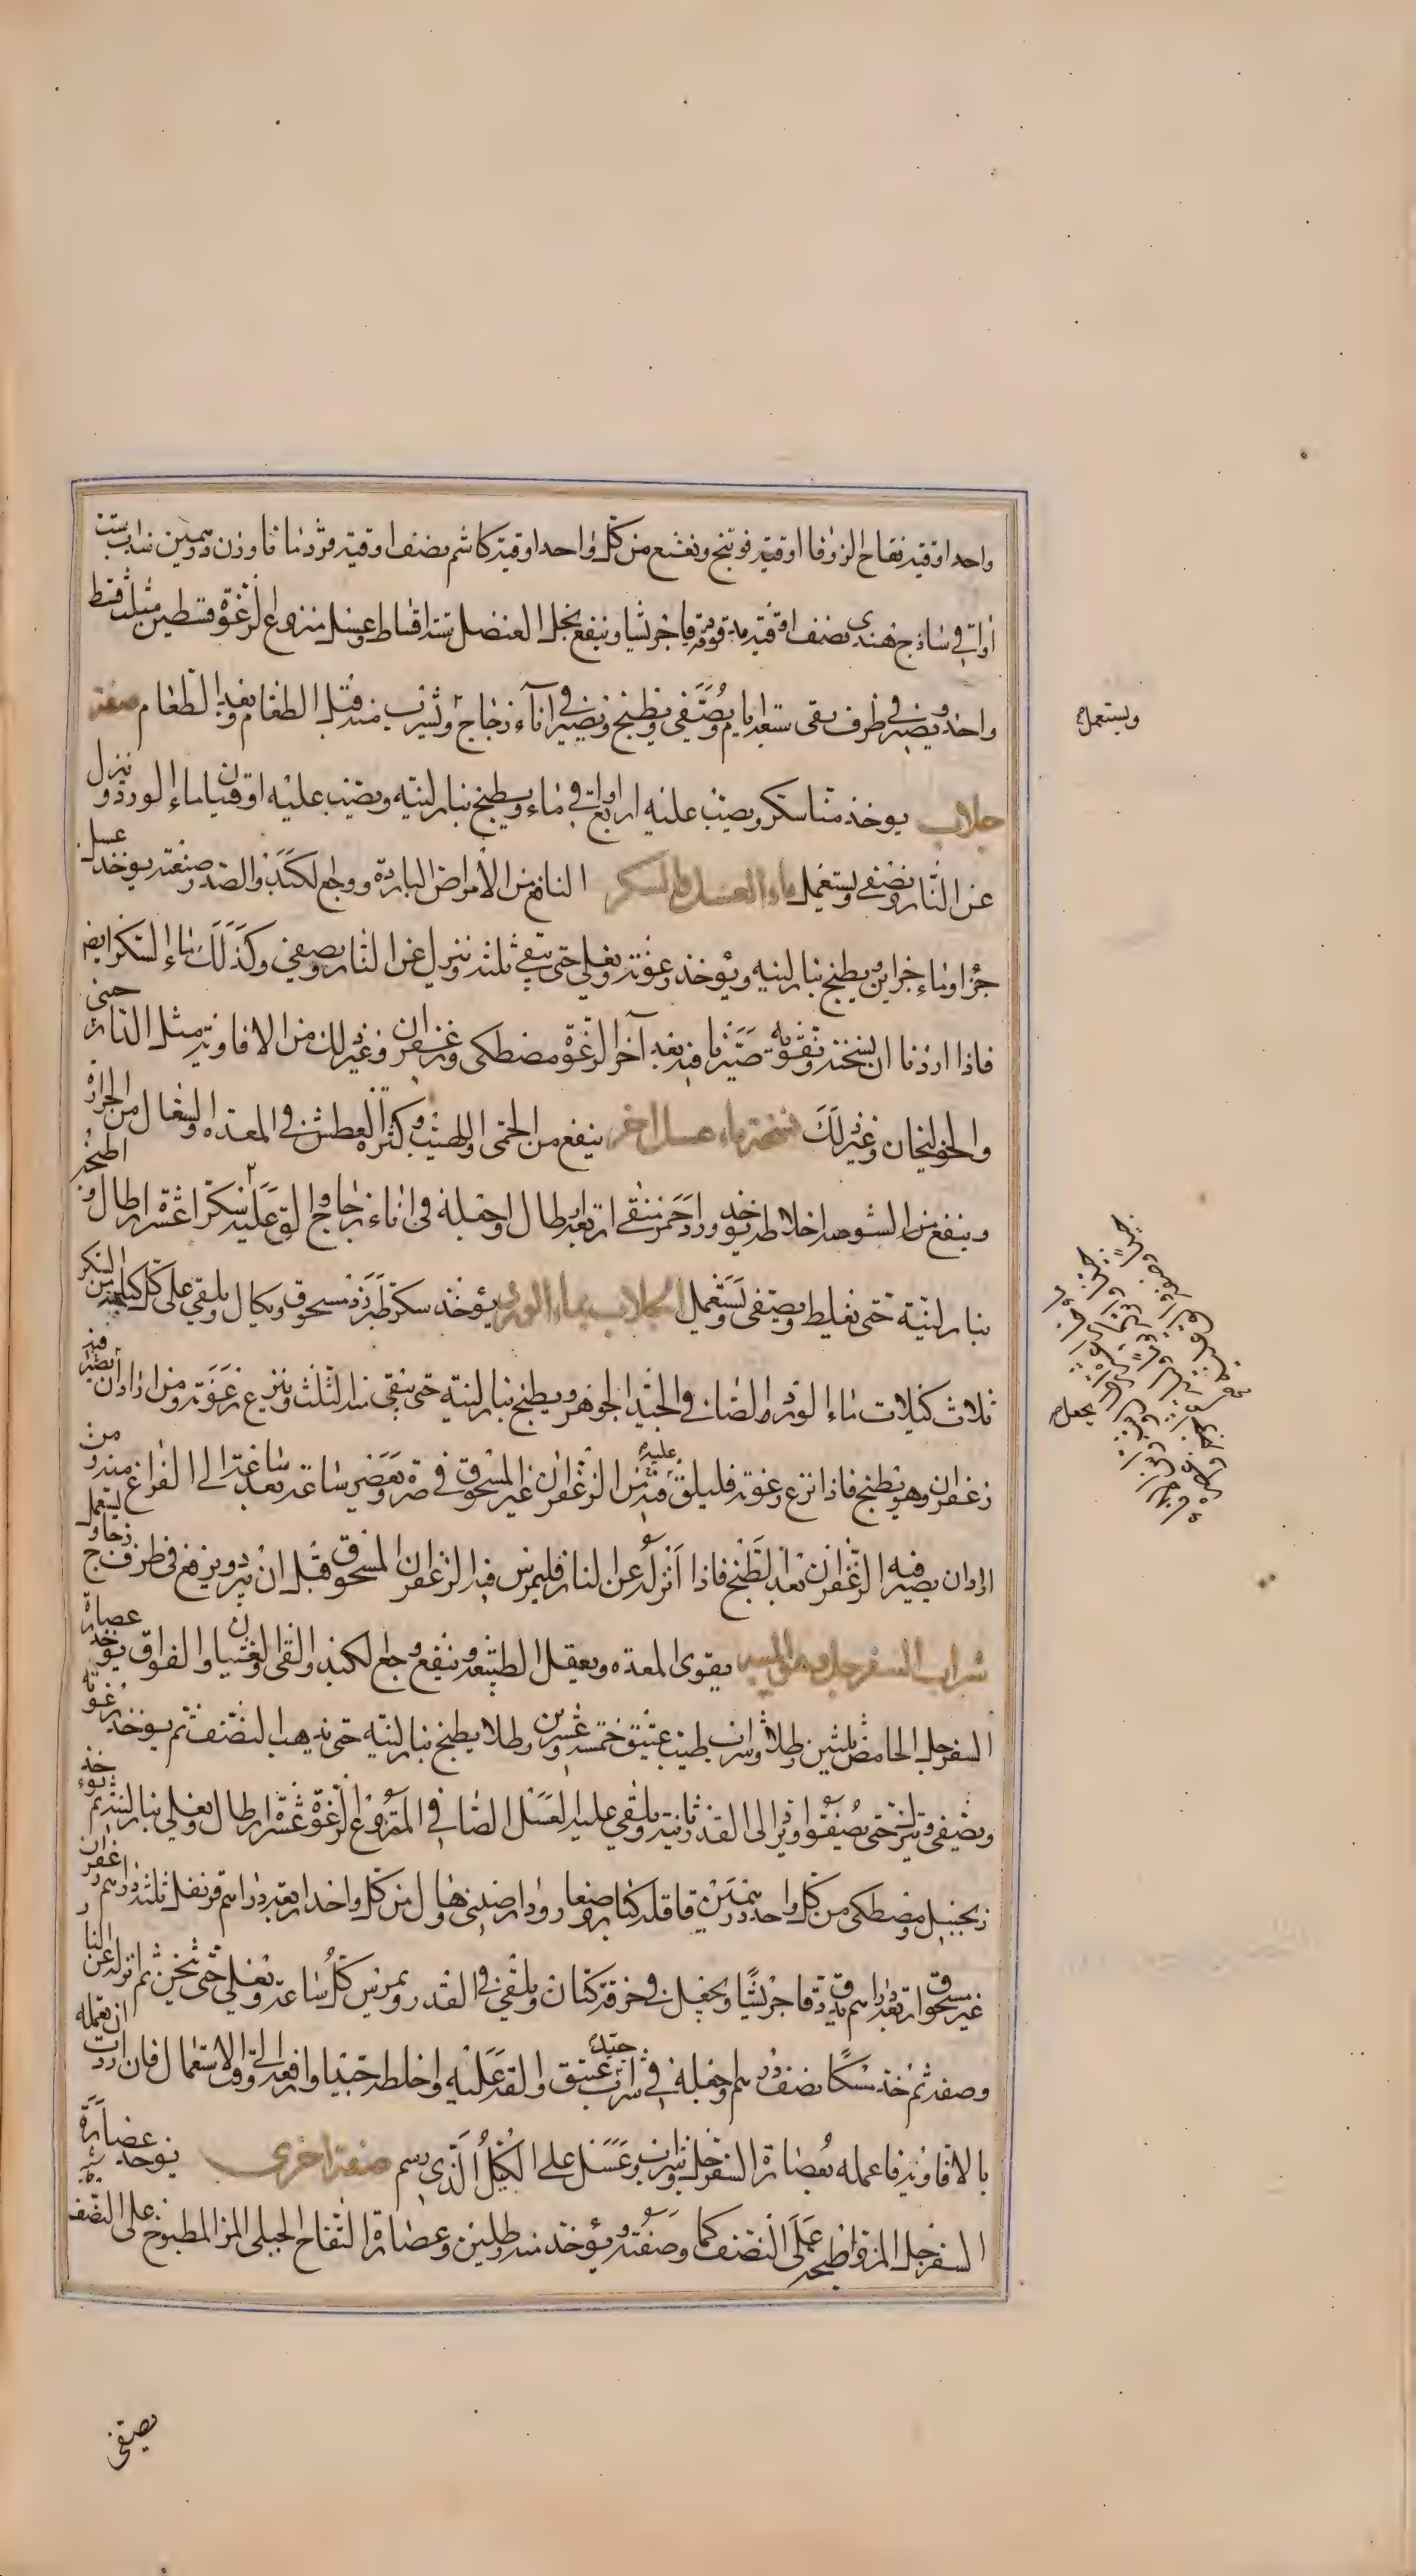 واحد اوقية فقاح الزوفا اوقية فوتنج ونعنع من كل واحد اوقية كاشم نصف اوقية قردمانا وزن درهمين شراب ست
اواقي ساذج هندي نصف اوقية مدقوقة جريشا وينقع بخل العنصل ستة اقساط وعسل منزوع الرغوة قسطين مثلث قسط
واحد ويصير في ظرف نقي سبعة ايام ويصفى ويطبخ ويصير في اناء زجاج ويشرب منه قبل الطعام وبعد الطعام صفة
جلاب يوخذ منا سكر ويصب عليه اربع اواقي ماء ويطبخ بنار لينه ويصب عليه اوقيتان ماء الورد وينزل
عن النار ويصفى ويستعمل ماء العسل والسكر النافع من الامراض البارده ووجع الكبد والصدر صنعته يوخذ عسل
جزا وماء جزاين ويطبخ بنار لينه ويوخذ رغوته ويغلي حتى يبقى ثلثه وينزل عن النار ويصفى وكذلك ماء السكر ايضا
فاذا اردنا ان نسخنه ونقويه صيرنا فيه بعد آخر الرغوة مصطكى وزعفران وغير ذلك من الافاويه مثل الدارصيني
والخولنجان وغير ذلك نسخة ماء عسل اخر ينفع من الحمى واللهيب وكثرة العطش في المعده والسعال من الحرارة
وينفع من الشوصه اخلاطه يوخذ ورد احمر منقى اربعة ارطال واجعله في اناء زجاج والق عليه سكرا عشرة ارطال واطبخه
بنار لينة حتى يغلظ ويصفى ويستعمل الجلاب بماء الورد يؤخذ سكر طبرزد مسحوق ويكال ويلقى على كل كيلجه من السكر
ثلاث كيلات ماء الورد الصافي الجيد الجوهر ويطبخ بنار لينة حتى يبقى منه الثلث وينزع رغوته ومن اراد ان يصير فيه
زعفران وهو يطبخ فاذا نزع رغوته فليلق فيه من الزعفران غير المسحوق في صرة ويعصر ساعة بعد ساعة الى الفراغ منه ومن
اراد ان يصير فيه الزعفران بعد الطبخ فاذا انزله عن النار فليمرس فيه الزعفران المسحوق قبل ان يبرد ويرفع في ظرف زجاج ويستعمل
شراب السفرجل وهو الميبه يقوى المعده ويعقل الطبيعه وينفع وجع الكبد والقى والغثيان والفواق يوخذ عصارة
السفرجل الحامض ثلثين رطلا وشراب طيب عتيق خمسة وعشرين رطلا يطبخ بنار لينه حتى يذهب النصف ثم يوخذ رغوته
ويصفى ويترك حتى يصفو ويرد الى القدر ثانية ويلقى عليه العسل الصافي المنزوع الرغوة عشرة ارطال ويغلي بنار لينه ثم يوخذ
زنجبيل ومصطكى من كل واحد درهمين قاقله كبار وصغار ودارصيني وهال من كل واحد اربعة دراهم قرنفل ثلثة دراهم زعفران
غير مسحوق اربعة دراهم يدق دقا جريشا ويجعل في خرقة كتان ويلقى في القدر ويمرس كل ساعة ويغلي حتى يثخن ثم انزله عن النار
وصفه ثم خذ مسكا نصف درهم واجعله في شراب عتيق جيد والقه عليه واخلطه جيدا وارفعه الى وقت الاستعمال فان اردت ان تعمله
بلا افاويه فاعمله بعصارة السفرجل وشراب وعسل على الكيل الذي رسم صفة اخرى يوخذ عصارة
السفرجل المز واطبخه على النصف كما وصفته ويؤخذ منه رطلين وعصارة التفاح الجبلي المز المطبوخ على النصف
ويستعمل
يجعل
يصفى